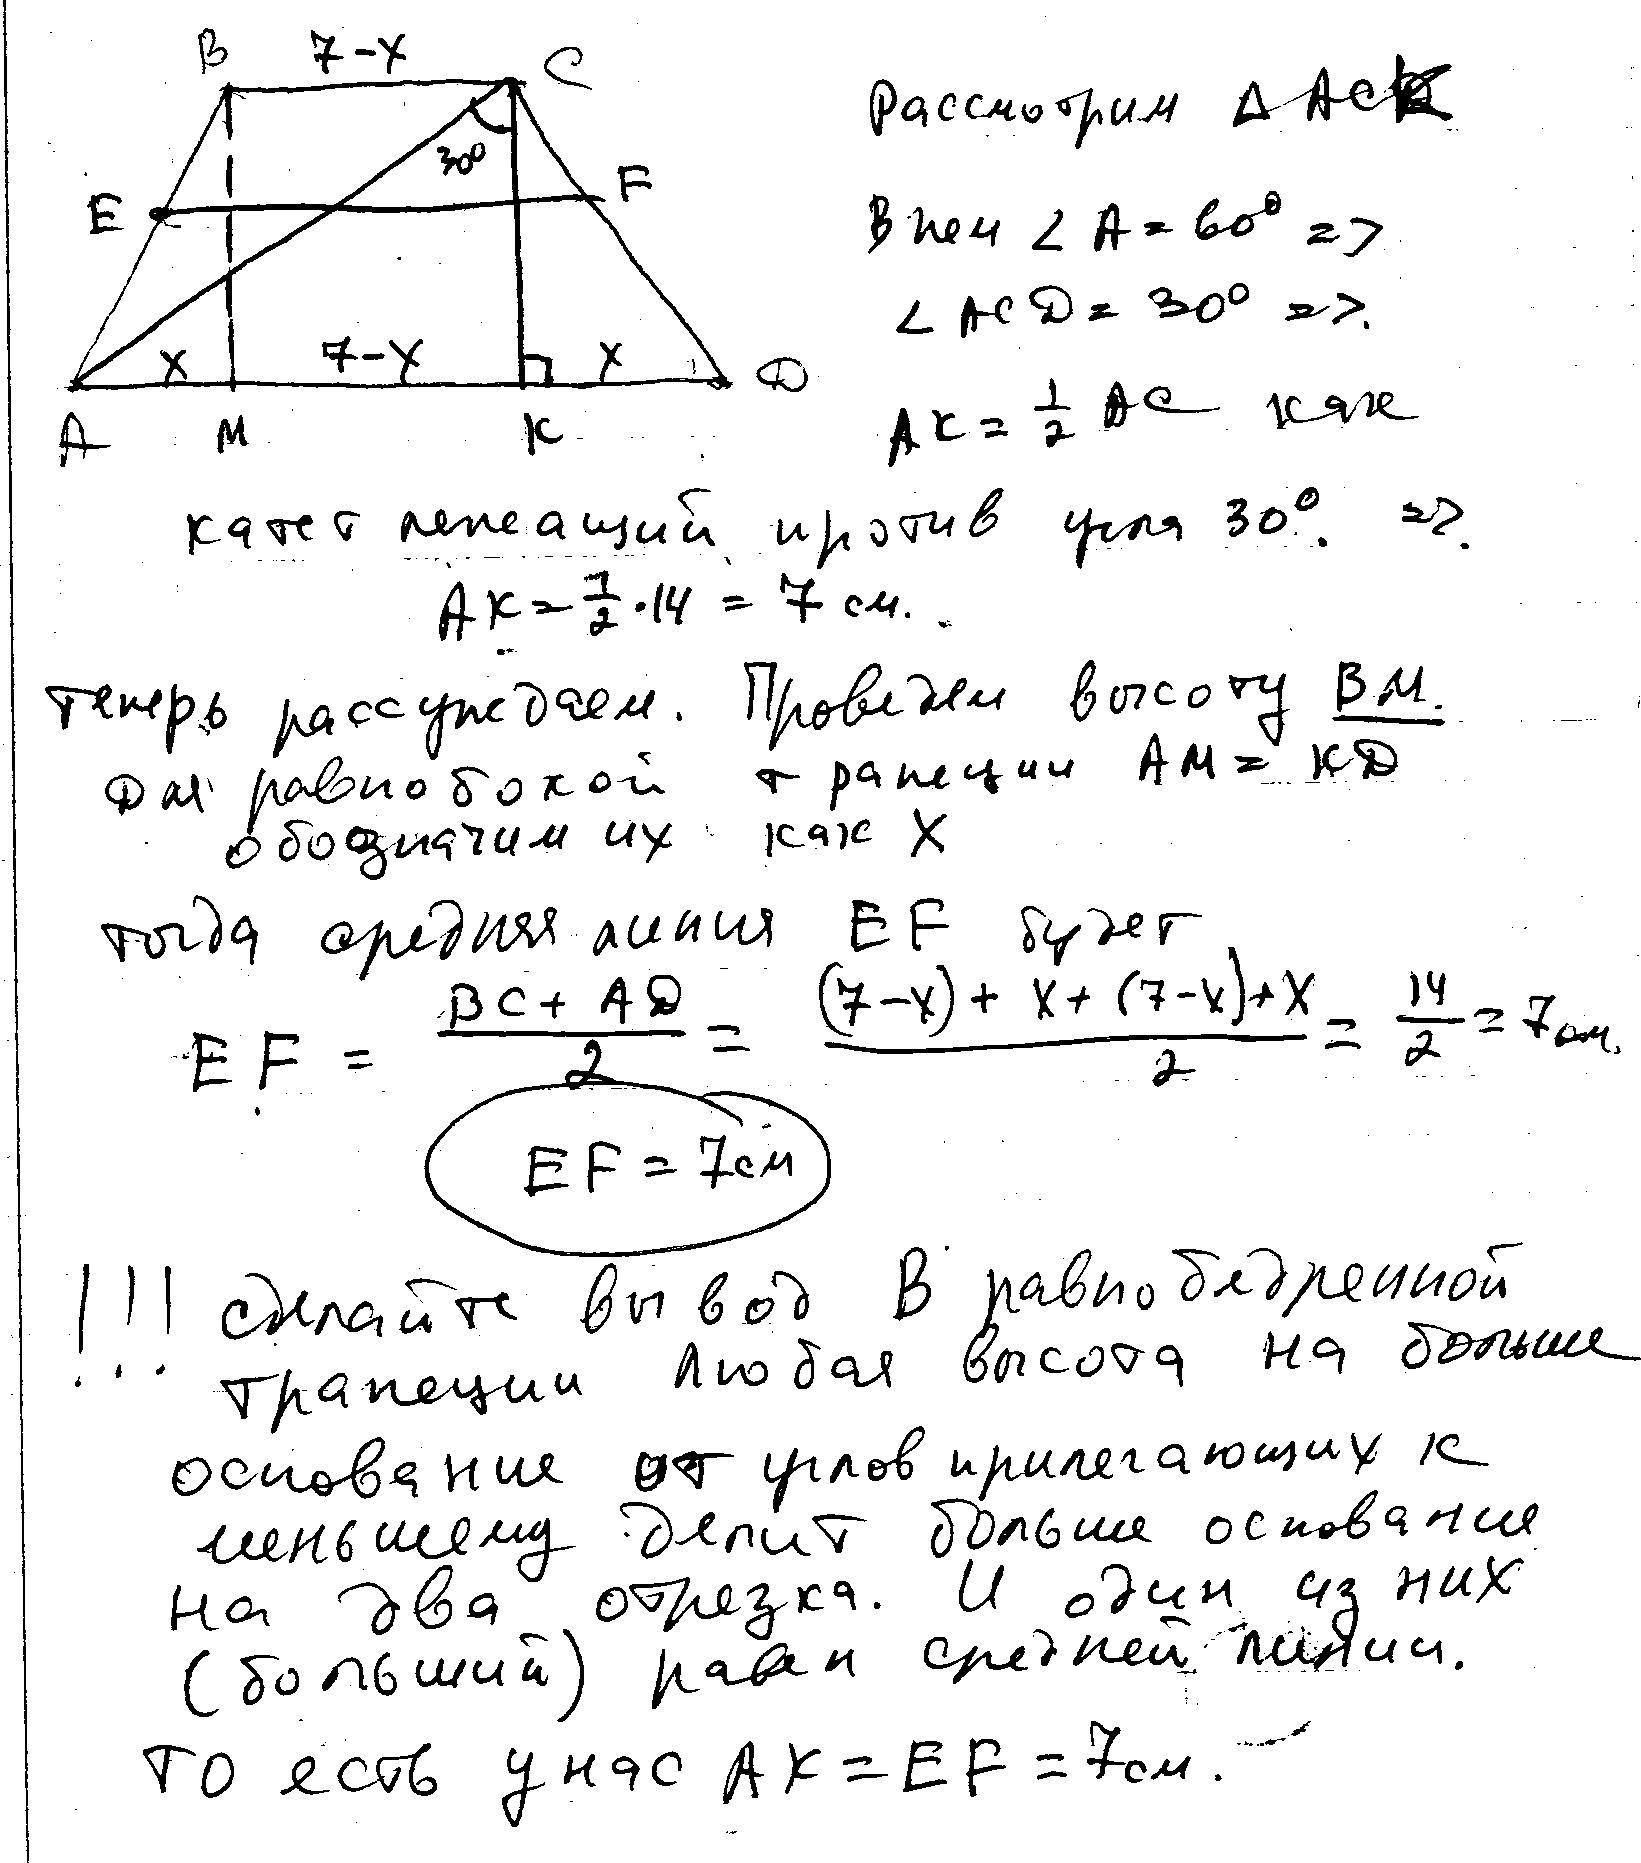 B 7-x C
30°
E F
x 7-x x D
A M K
Рассмотрим Δ ACK
В нем ∠ A = 60° =>
∠ ACD = 30° =>.
AK = 1/2 AC как
катет лежащий против угла 30°. =>.
AK = 1/2 · 14 = 7 см.
теперь рассуждаем. Проведем высоту BM.
Для равнобокой трапеции AM = KD
обозначим их как X
тогда средняя линия EF будет
EF = (BC + AD)/2 = ((7-x) + x + (7-x) + x)/2 = 14/2 = 7 см.
EF = 7 см
!!! сделайте вывод В равнобедренной
трапеции любая высота на больше
основание от углов прилегающих к
меньшему делит больше основание
на два отрезка. И один из них
(больший) равен средней линии.
то есть у нас AK = EF = 7 см.